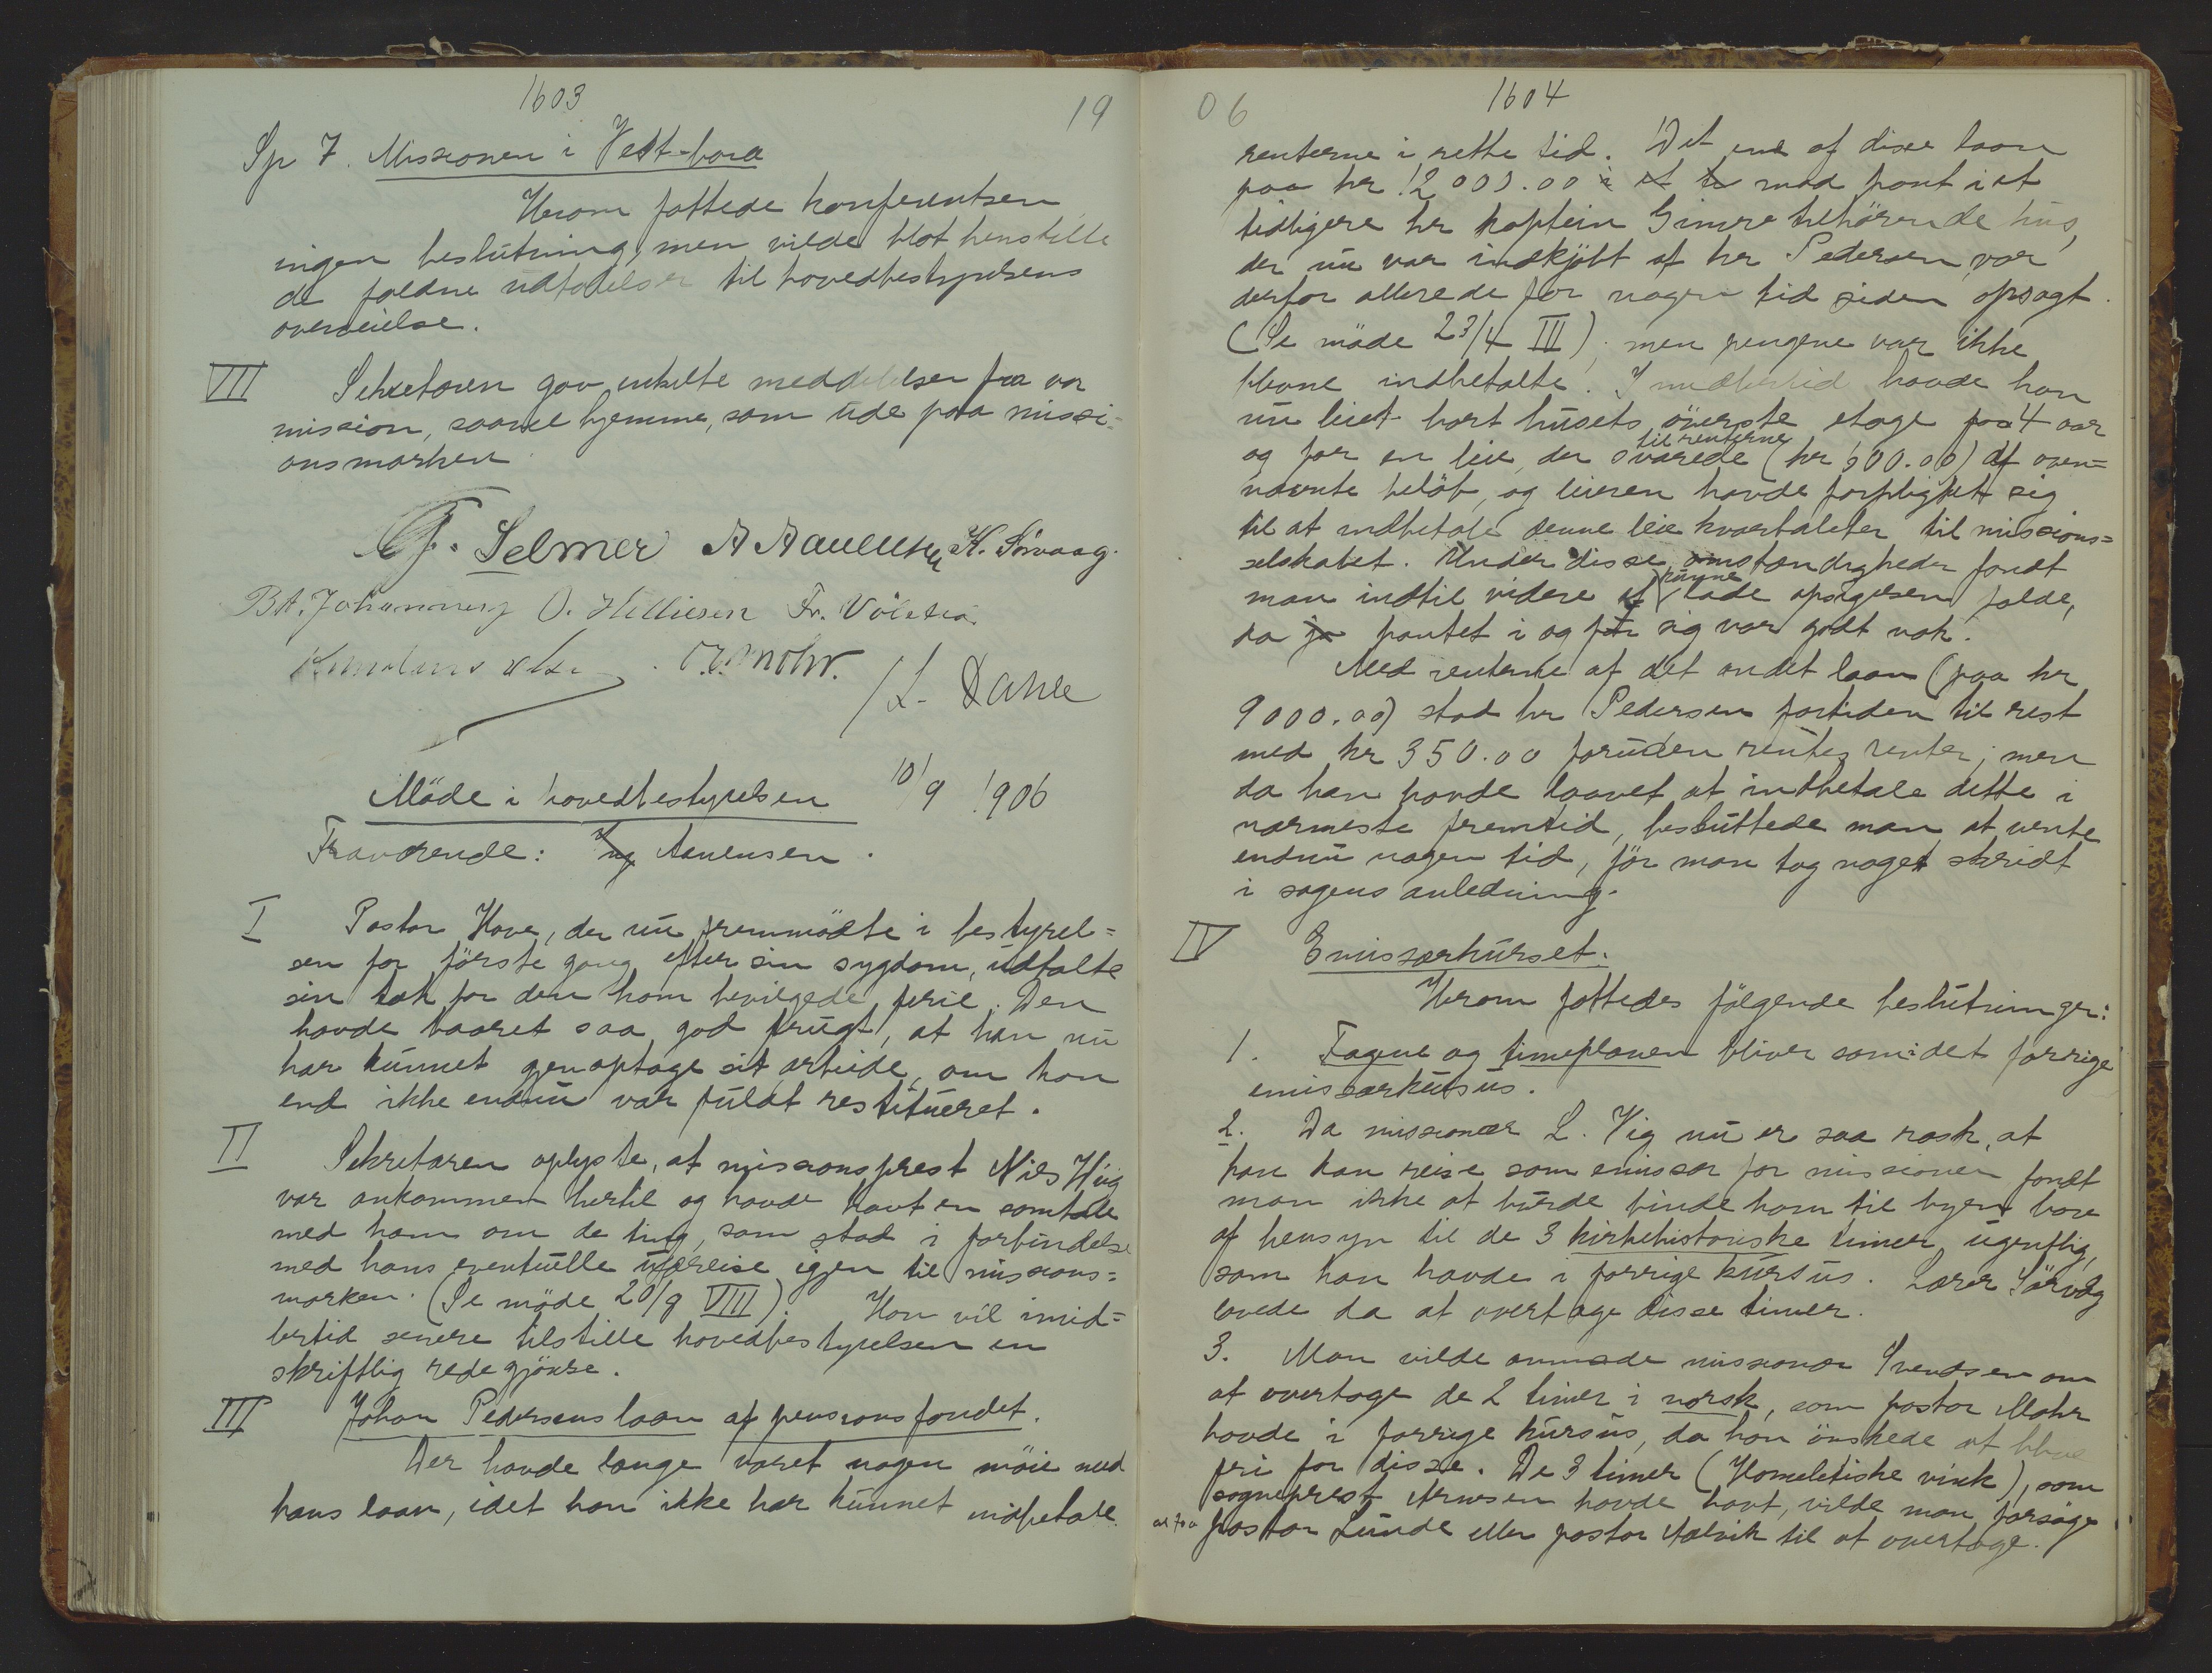 1603
19
Sp 7. Missionen i Vest-bara
Herom fattede konferentsen
ingen beslutning, men vilde blot henstille
de faldne udtalelser til hovedbestyrelsens
overveielse.
VII Sekretæren gav enkelte meddelelser fra vor
mission, saavel hjemme, som ude paa missi-
onsmarken
Selmer A Aanensen K. Sörvaag.
Bt. Johannesen O. Helliesen Fr. Völstad.
O. E. Mohr.
/L. Dahle
Möde i hovedbestyrelsen 10/9 1906
Fraværende: Aanensen.
I Pastor Hove, der nu fremmödte i bestyrel-
sen for förste gang efter sin sygdom, udtalte
sin tak for den ham bevilgede ferie. Den
havde baaret saa god frugt, at han nu
har kunnet gjenoptage sit arbeide, om han
end ikke endnu var fuldt restitueret.
II Sekretæren oplyste, at missionsprest Nils Hög
var ankommen hertil og havde havt en samtale
med ham om de ting, som stod i forbindelse
med hans eventuelle udreise igjen til missions-
marken. (Se möde 20/9 VIII). Han vil imid-
lertid senere tilstille hovedbestyrelsen en
skriftlig redegjörelse.
III Johan Pedersens laan af pensionsfondet.
Der havde længe været nogen möie med
hans laan, idet han ikke har kunnet indbetale
06
1604
renterne i rette tid. Det ene af disse laan
paa kr 12 000.00 mod pant i et
tidligere hr kaptein Gimre tilhörende hus,
der nu var indkjöbt af hr Pedersen var
derfor allerede for nogen tid siden opsagt.
(Se möde 23/4 III); men pengene var ikke
blevne indbetalte. Imidlertid havde han
nu leiet bort husets överste etage paa 4 aar
og for en leie, der svarede til renterne (kr 600.00) af oven-
nævnte belöb, og leieren havde forpligtet sig
til at indbetale denne leie kvartaleter til missions-
selskabet. Under disse omstændigheder fandt
man indtil videre at kunne lade opsigelsen falde,
da pantet i og for sig var godt nok.
Med renterne af det andet laan (paa kr
9000.00) stod hr Pedersen fortiden til rest
med kr 350.00 foruden rentes renter; men
da han havde lovet at indbetale dette i
nærmeste fremtid, besluttede man at vente
endnu nogen tid, för man tog noget skridt
i sagens anledning.
IV Emissærkurset.
Herom fattedes fölgende beslutninger:
1. Fagene og timeplanen bliver som i det forrige
emissærkursus.
2. Da missionær L. Vig nu er saa rask, at
han kan reise som emissær for missionen fandt
man ikke at burde binde ham til byen bare
af hensyn til de 3 kirkehistoriske timer ugentlig,
som han havde i forrige kursus. Lærer Sörvåg
lovede da at overtage disse timer.
3. Man vilde anmode missionær Svendsen om
at overtage de 2 timer i norsk, som pastor Mohr
havde i forrige kursus, da han önskede at blive
fri for disse. De 3 timer (Homiletiske vink), som
sogneprest Arnesen havde havt, vilde man forsöge
at faa pastor Lunde eller pastor Aalvik til at overtage.